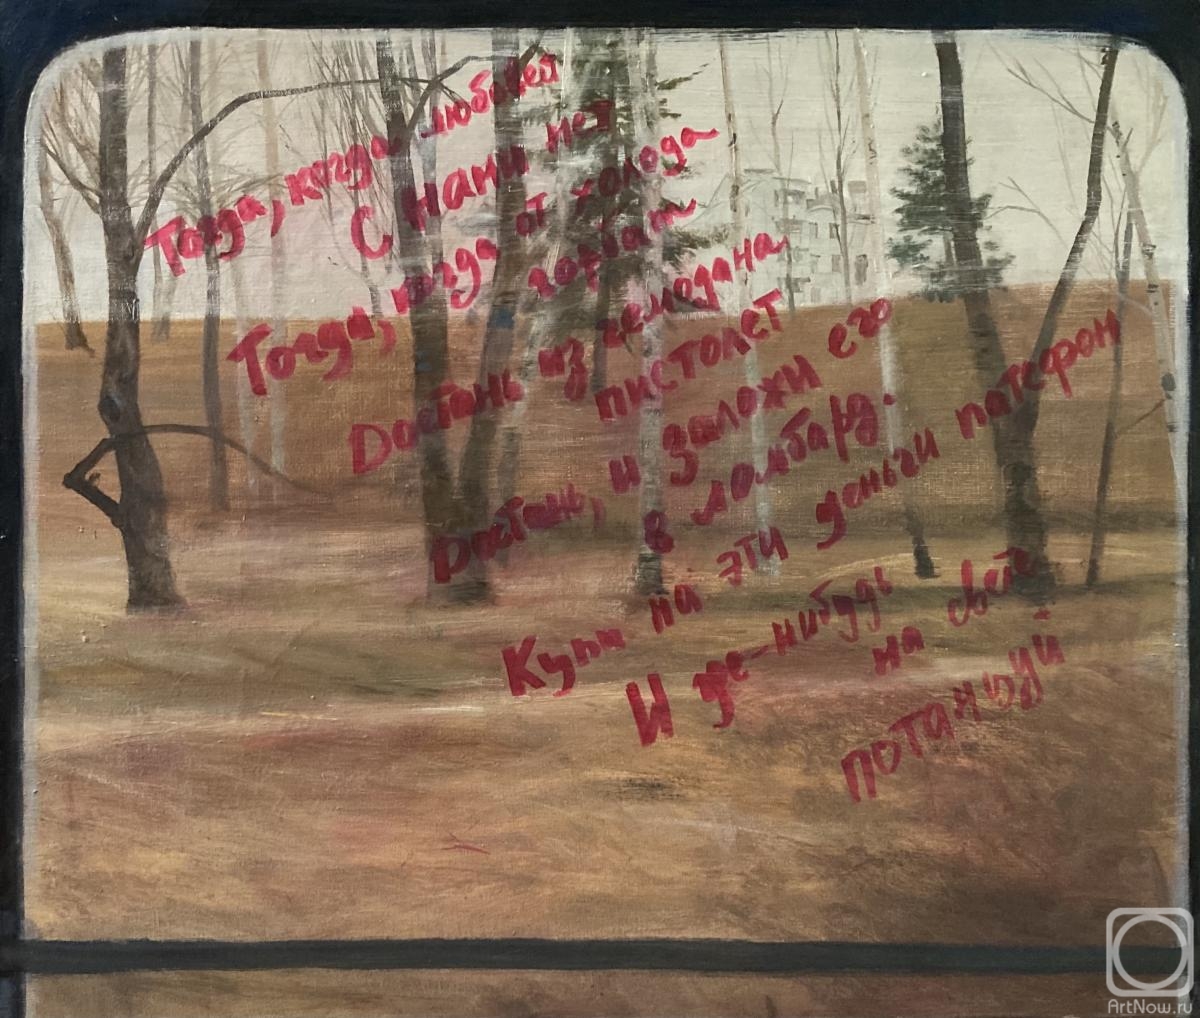 Тогда, когда любовей
с нами нет
Тогда, когда от холода
горбат
Достань из чемодана
пистолет
Достань, и заложи его
в ломбард.
Купи на эти деньги патефон
И где-нибудь
на свете
потанцуй
ArtNow.ru